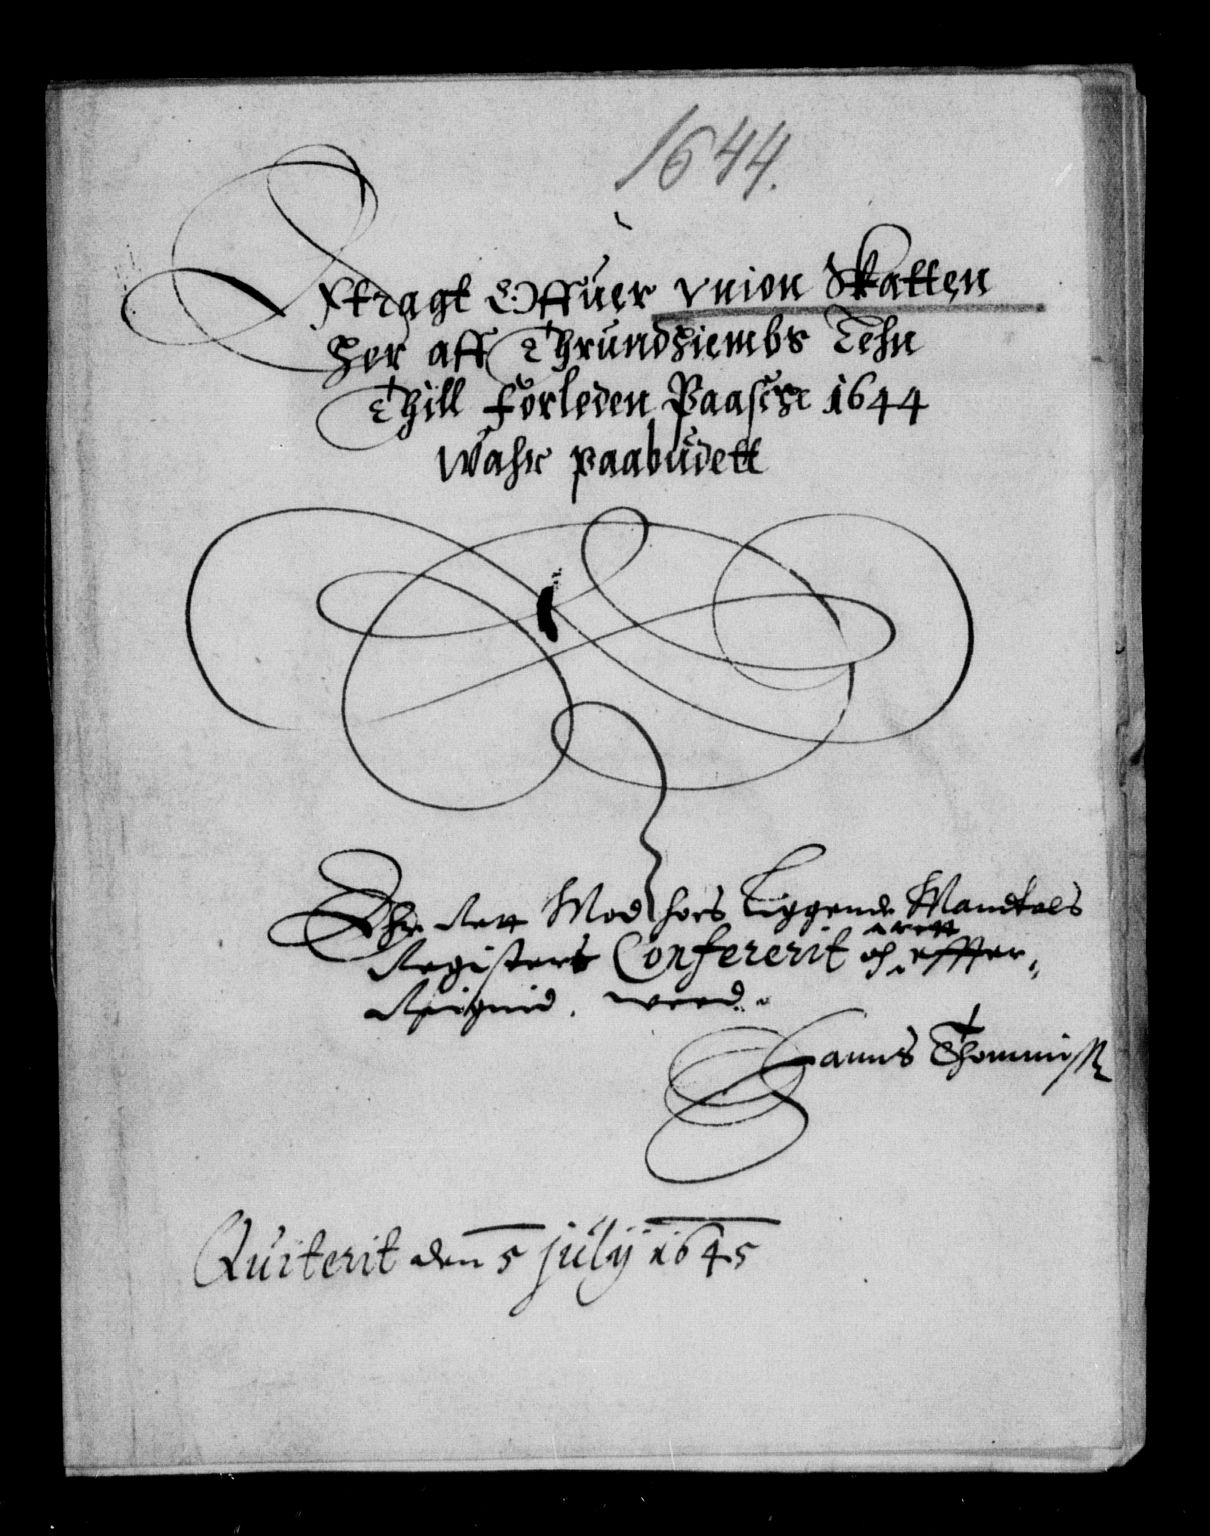 1644.
Extragt Offuer Vnion Skatten
Her aff Thrundhiembs Lehn
Thill forleden Paasche 1644
Wahr paabudett
Ehr Rett Mod hoes Liggende Mandtals
Registers Confererit och rett effter
Reignid. werd
Hanns Thommiss
Quiterit den 5 July 1645